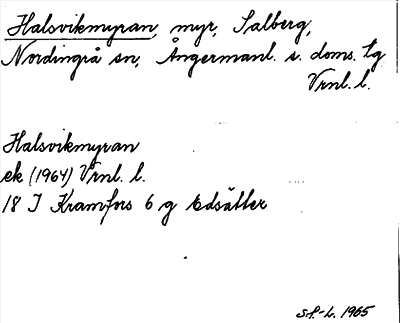 Halsvikmyran, myr, Salberg,
Nordingrå sn, Ångermanl. s. doms. tg
Vrnl. l.
Halsvikmyran
ek (1964) Vrnl. l.
18 I Kramfors 6 g Edsätter
1965